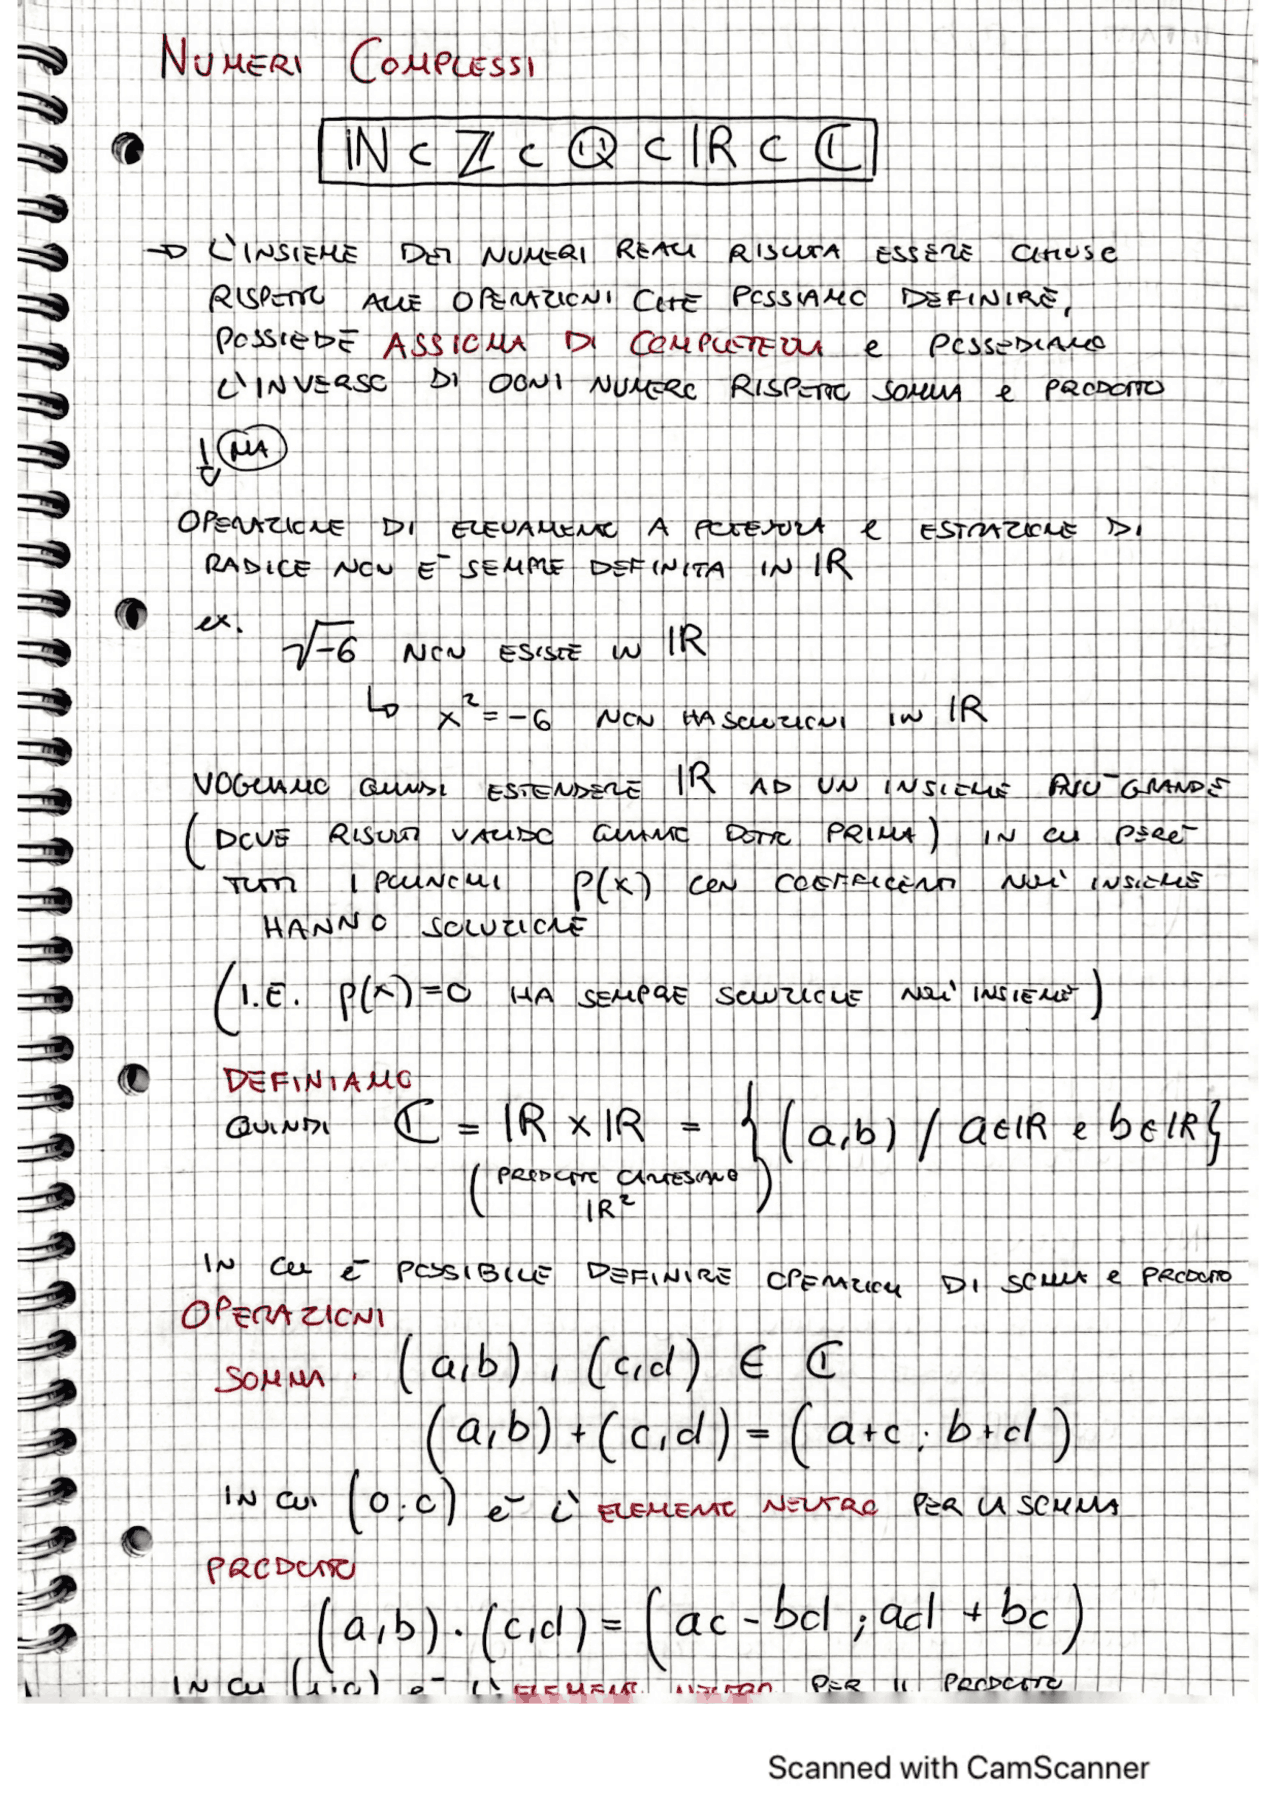 NUMERI COMPLESSI
ℕ ⊂ ℤ ⊂ ℚ ⊂ ℝ ⊂ ℂ
→ L'INSIEME DEI NUMERI REALI RISULTA ESSERE CHIUSO
RISPETTO ALLE OPERAZIONI CHE POSSIAMO DEFINIRE,
POSSIEDE ASSIOMA DI COMPLETEZZA e POSSEDIAMO
L'INVERSO DI OGNI NUMERO RISPETTO SOMMA e PRODOTTO
↓ MA
OPERAZIONE DI ELEVAMENTO A POTENZA e ESTRAZIONE DI
RADICE NON E' SEMPRE DEFINITA IN ℝ
ex.
√-6 NON ESISTE IN ℝ
↳ x² = -6 NON HA SOLUZIONI IN ℝ
VOGLIAMO QUINDI ESTENDERE ℝ AD UN INSIEME PIU' GRANDE
(DOVE RISULTI VALIDO QUANTO DETTO PRIMA) IN CUI PERO'
TUTTI I POLINOMI P(x) CON COEFFICENTI NELL'INSIEME
HANNO SOLUZIONE
(I.E. P(x)=0 HA SEMPRE SOLUZIONE NELL'INSIEME)
DEFINIAMO
QUINDI ℂ = ℝ × ℝ = {(a,b) / a∈ℝ e b∈ℝ}
(PRODOTTO CARTESIANO)
ℝ²
IN CUI è POSSIBILE DEFINIRE OPERAZIONI DI SOMMA e PRODOTTO
OPERAZIONI
SOMMA. (a,b), (c,d) ∈ ℂ
(a,b)+(c,d)=(a+c; b+d)
IN CUI (0;0) è L'ELEMENTO NEUTRO PER LA SOMMA
PRODOTTO
(a,b)·(c,d)=(ac-bd; ad+bc)
IN CUI (1;0) è L'ELEMENTO NEUTRO PER IL PRODOTTO
Scanned with CamScanner